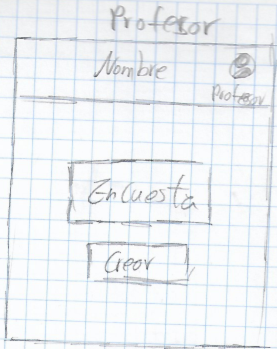 Profesor
Nombre
Profesor
Encuesta
Crear